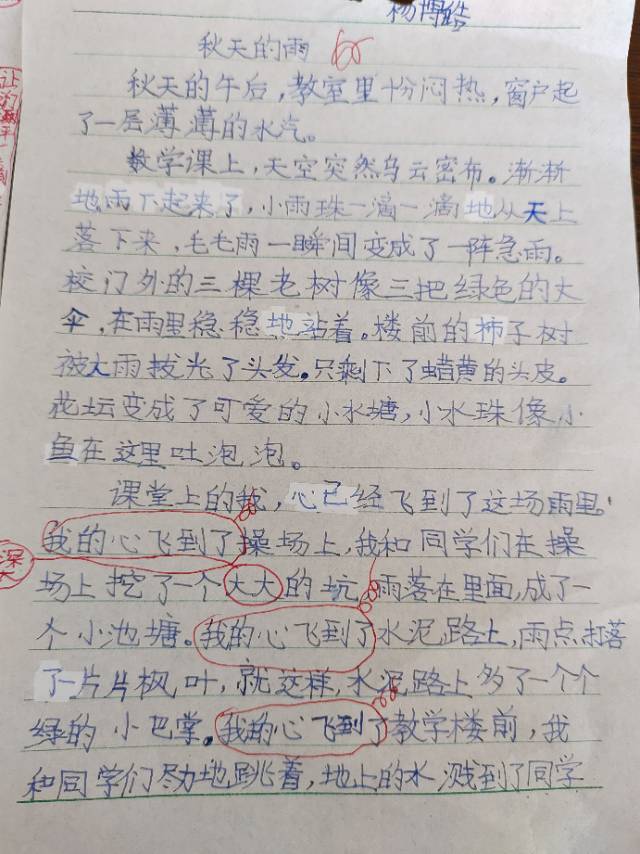 杨博皓
秋天的雨
秋天的午后，教室里十份闷热，窗户起
了一层薄薄的水汽。
数学课上，天空突然乌云密布。渐渐
地雨下起来了，小雨珠一滴一滴地从天上
落下来，毛毛雨一瞬间变成了一阵急雨。
校门外的三棵老树像三把绿色的大
伞，在雨里稳稳地站着。楼前的柿子树
被大雨拔光了头发。只剩下了蜡黄的头皮。
花坛变成了可爱的小水塘，小水珠像小
鱼在这里吐泡泡。
课堂上的我，心已经飞到了这场雨里。
我的心飞到了操场上，我和同学们在操
场上挖了一个大大的坑，雨落在里面，成了一
个小池塘。我的心飞到了水泥路上，雨点打落
了一片片枫叶，就这样，水泥路上多了一个个
绿的小巴掌。我的心飞到了教学楼前，我
和同学们尽力地跳着，地上的水溅到了同学